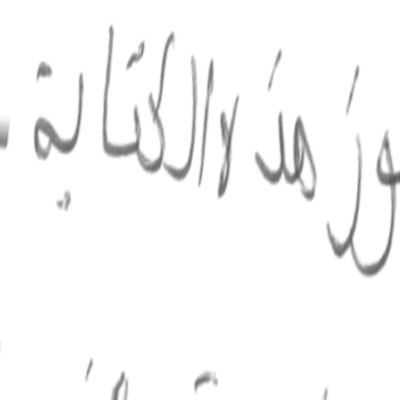 وز هذه الكتابة